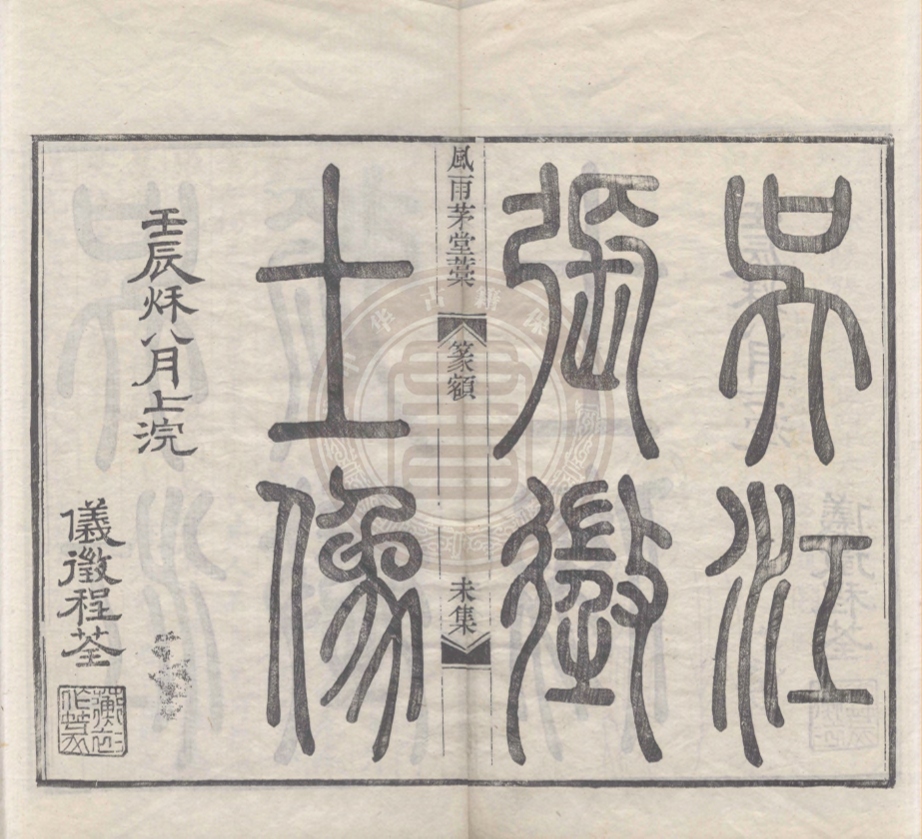 吳江
張徵
士像
風雨茅堂藁
篆額
未集
壬辰秌八月上浣
儀徵程荃